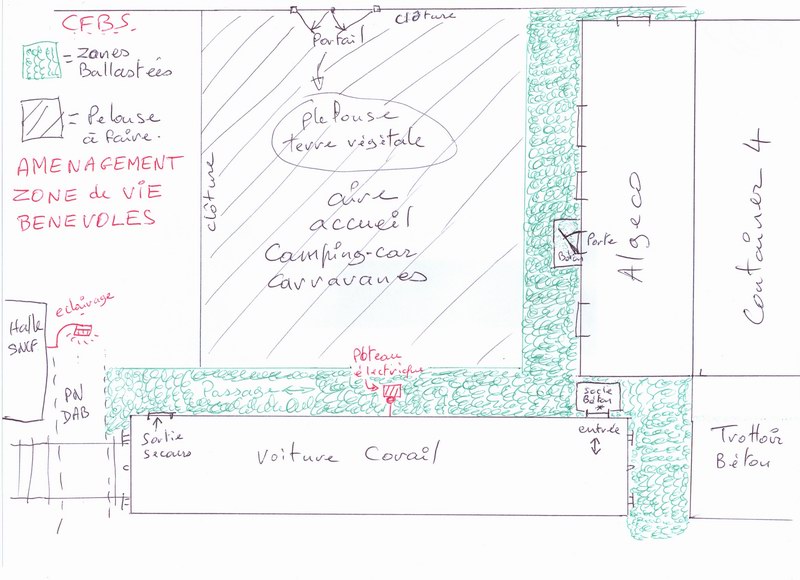 CFBS.
= Zones
Ballastées
= Pelouse
à faire.
AMENAGEMENT
ZONE de VIE
BENEVOLES
clôture
Portail
plelouse
terre végétale
clôture
aire
accueil
Camping-car
carravanes
Porte
Béton
Algeco
Container 4
eclairage
Halle
SNCF
PN
DAB
Poteau
électrique
Passage
socle
Béton
entrée
Sortie
secours
Voiture Corail
Trottoir
Béton